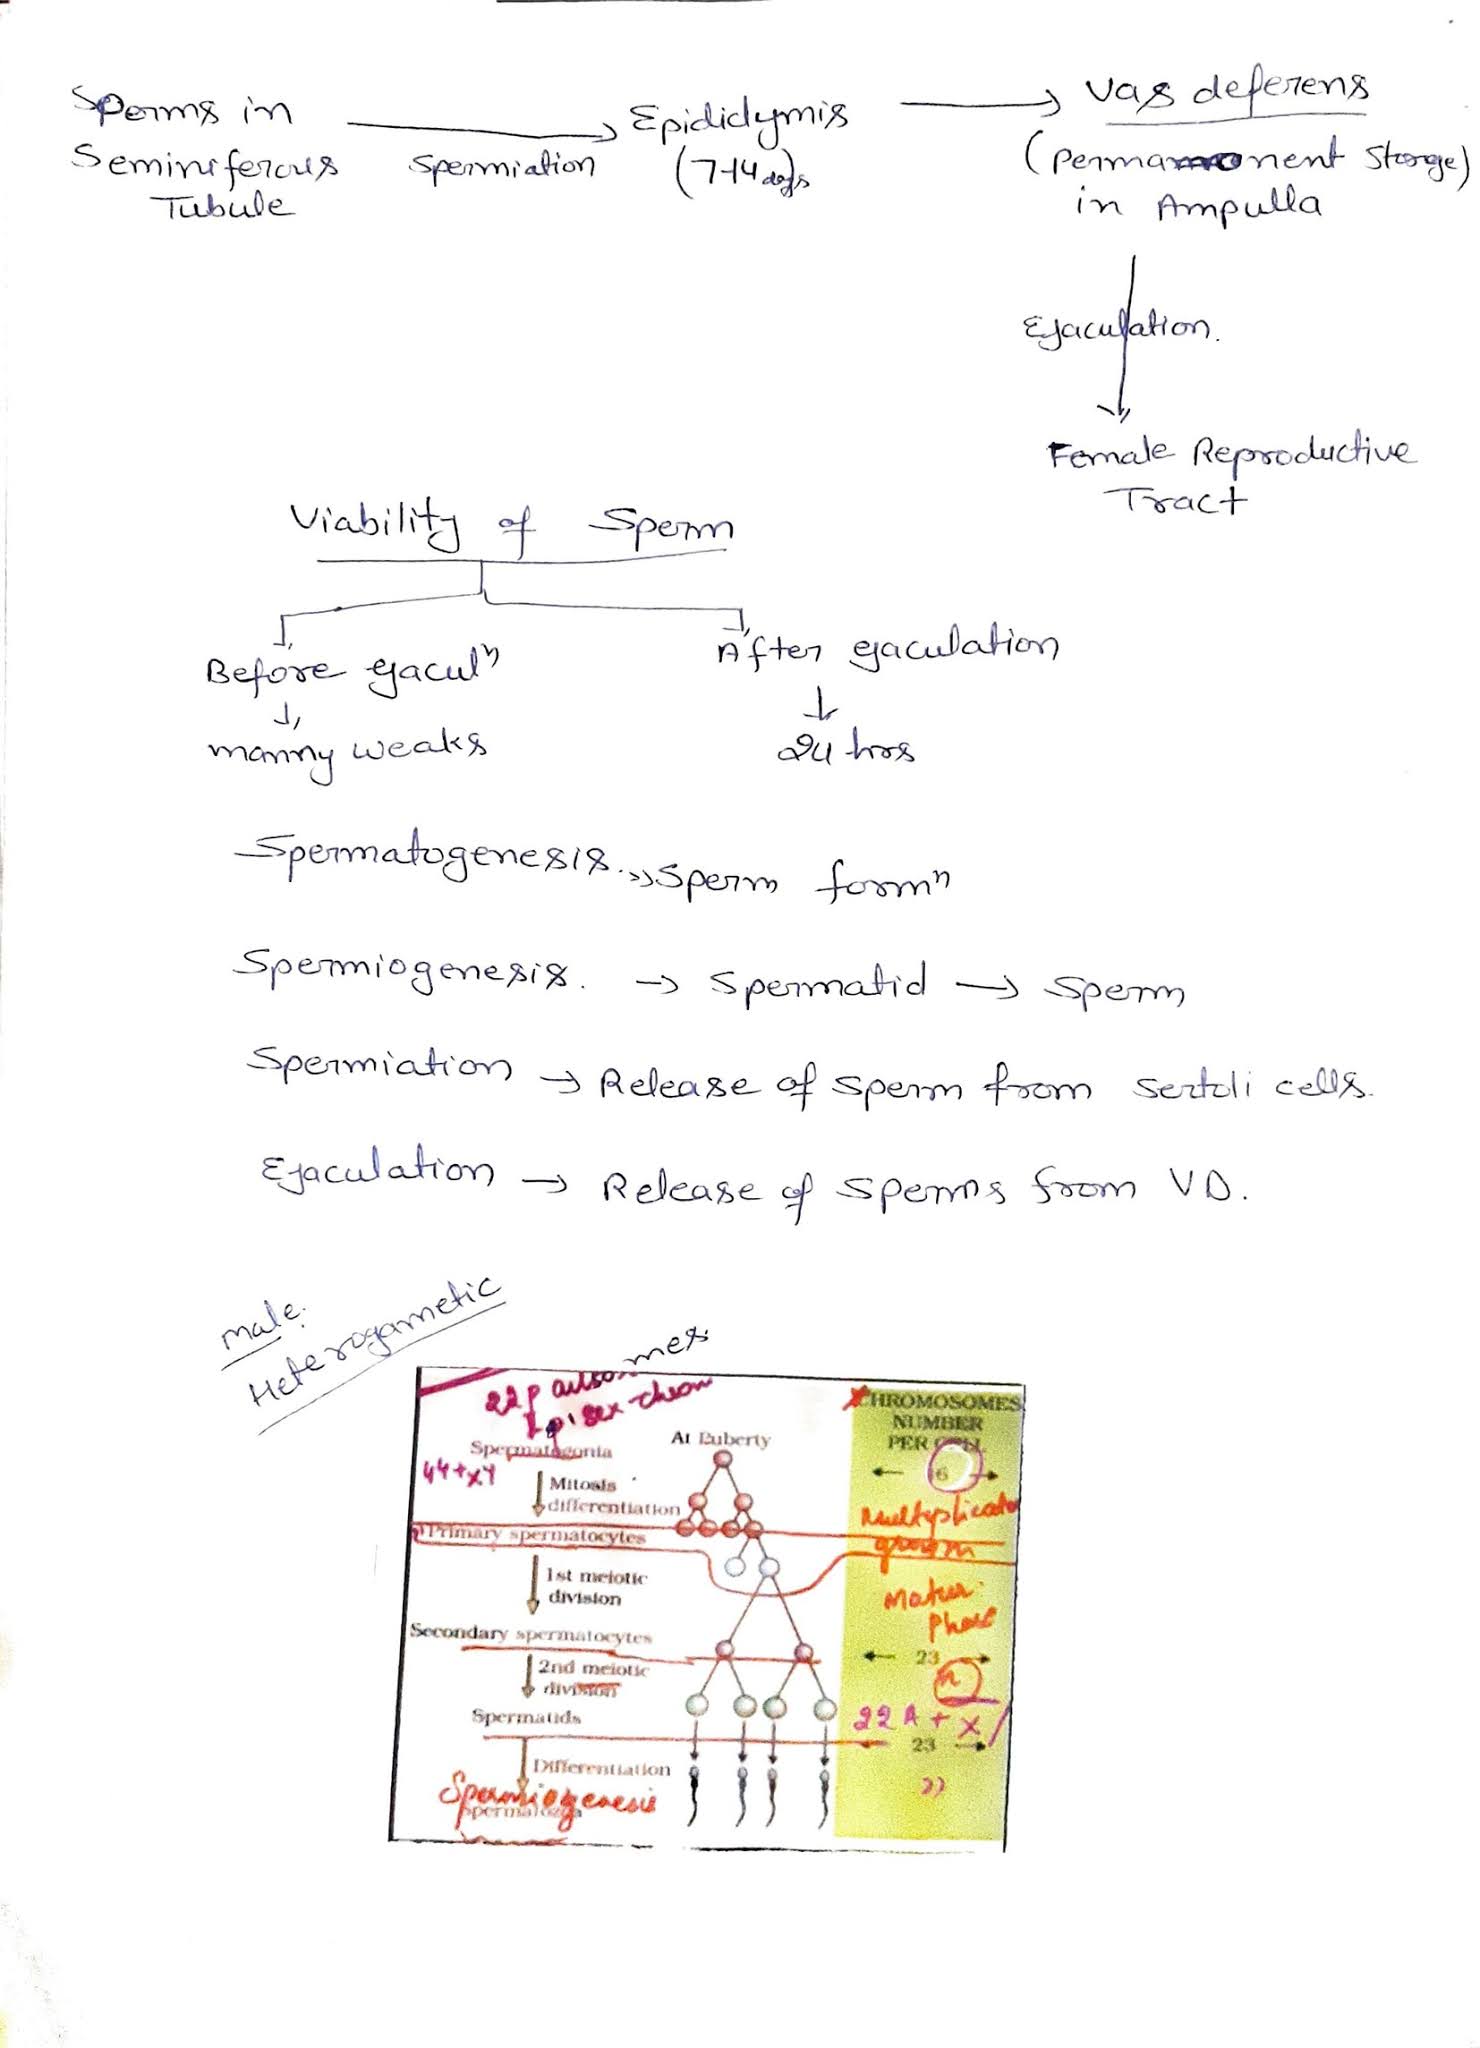 Sperms in
Seminiferous
Tubule
Spermiation
Epididymis
(7-14 days
Vas deferens
(Permanent Storge)
in Ampulla
Ejaculation.
Female Reproductive
Tract
Viability of Sperm
Before ejaculⁿ
manny weaks
After ejaculation
24 hrs
Spermatogenesis. Sperm formⁿ
Spermiogenesis. → Spermatid → Sperm
Spermiation → Release of sperm from sertoli cells.
Ejaculation → Release of sperms from VD.
male:
Heterogametic
22p autosomes
1 sex-chrom
Spermatogonia
44+XY
At Puberty
Mitosis
differentiation
Primary spermatocytes
1st meiotic
division
Secondary spermatocytes
2nd meiotic
division
Spermatids
Differentiation
Spermiogenesis
CHROMOSOMES
NUMBER
PER CELL
Multiplicato
growth
Matur.
Phase
23
n
22A + X/
23